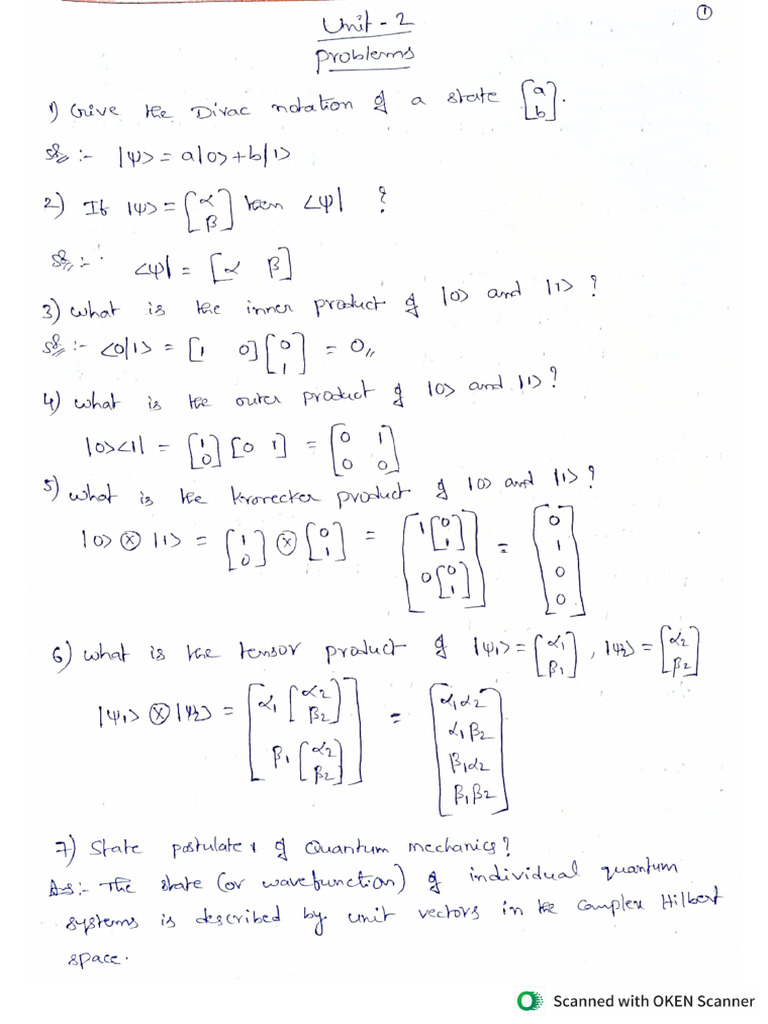 ①
Unit - 2
Problems
1) Give the Dirac notation of a state [a b].
Sol :- |ψ> = a|0> + b|1>
2) If |ψ> = [α β] then <ψ| ?
Sol :- <ψ| = [α β]
3) What is the inner product of |0> and |1> ?
Sol :- <0|1> = [1 0] [0 1] = 0//
4) What is the outer product of |0> and |1> ?
|0><1| = [1 0] [0 1] = [0 1 0 0]
5) What is the Kronecker product of |0> and |1> ?
|0> ⊗ |1> = [1 0] ⊗ [0 1] = [1[0 1] 0[0 1]] = [0 1 0 0]
6) What is the tensor product of |ψ1> = [α1 β1], |ψ2> = [α2 β2]
|ψ1> ⊗ |ψ2> = [α1 [α2 β2] β1 [α2 β2]] = [α1α2 α1β2 β1α2 β1β2]
7) State postulates of Quantum mechanics?
Ans :- The state (or wavefunction) of individual quantum
systems is described by unit vectors in the complex Hilbert
space.
Scanned with OKEN Scanner